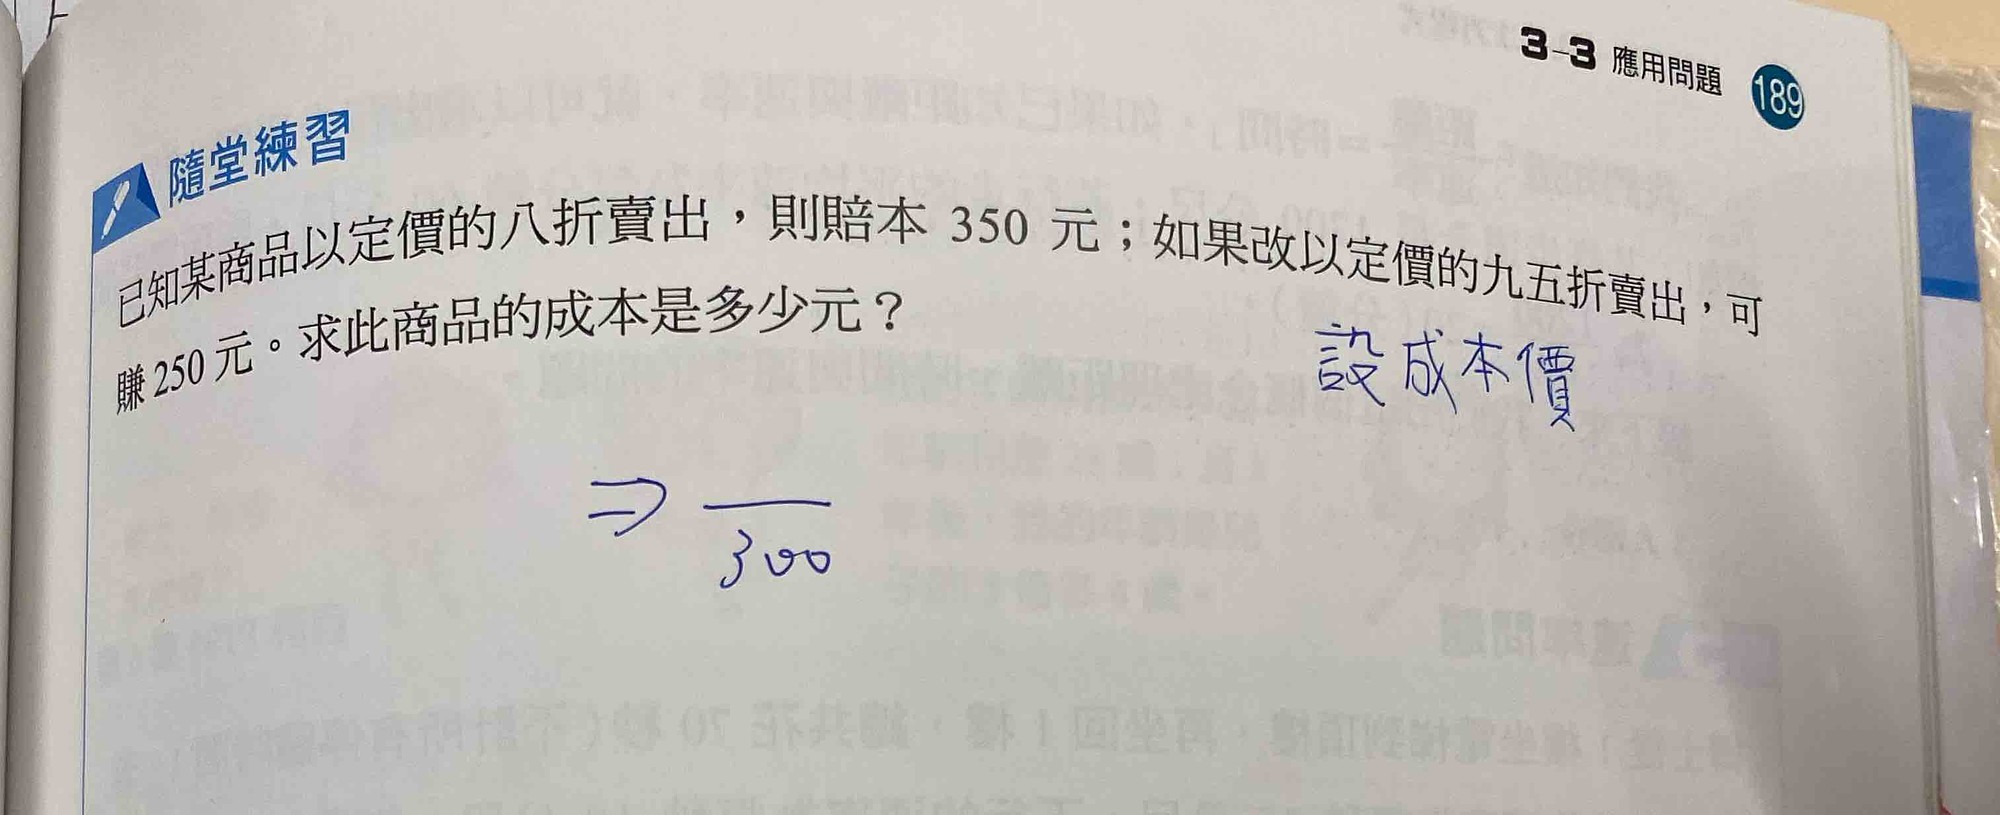 3-3 應用問題 189
隨堂練習
已知某商品以定價的八折賣出，則賠本 350 元；如果改以定價的九五折賣出，可
賺 250 元。求此商品的成本是多少元？
設成本價
⇒ —
300